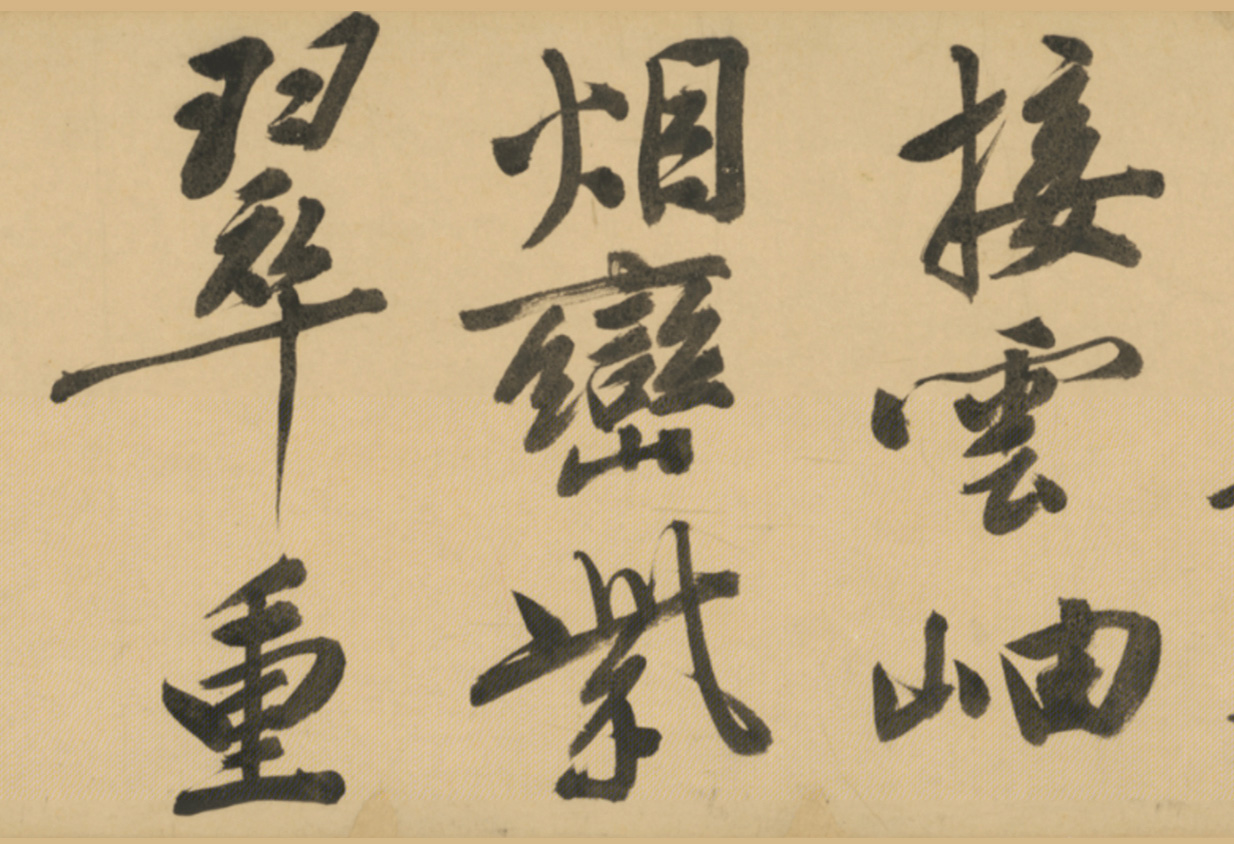 接雲岫
烟巒紫
翠重